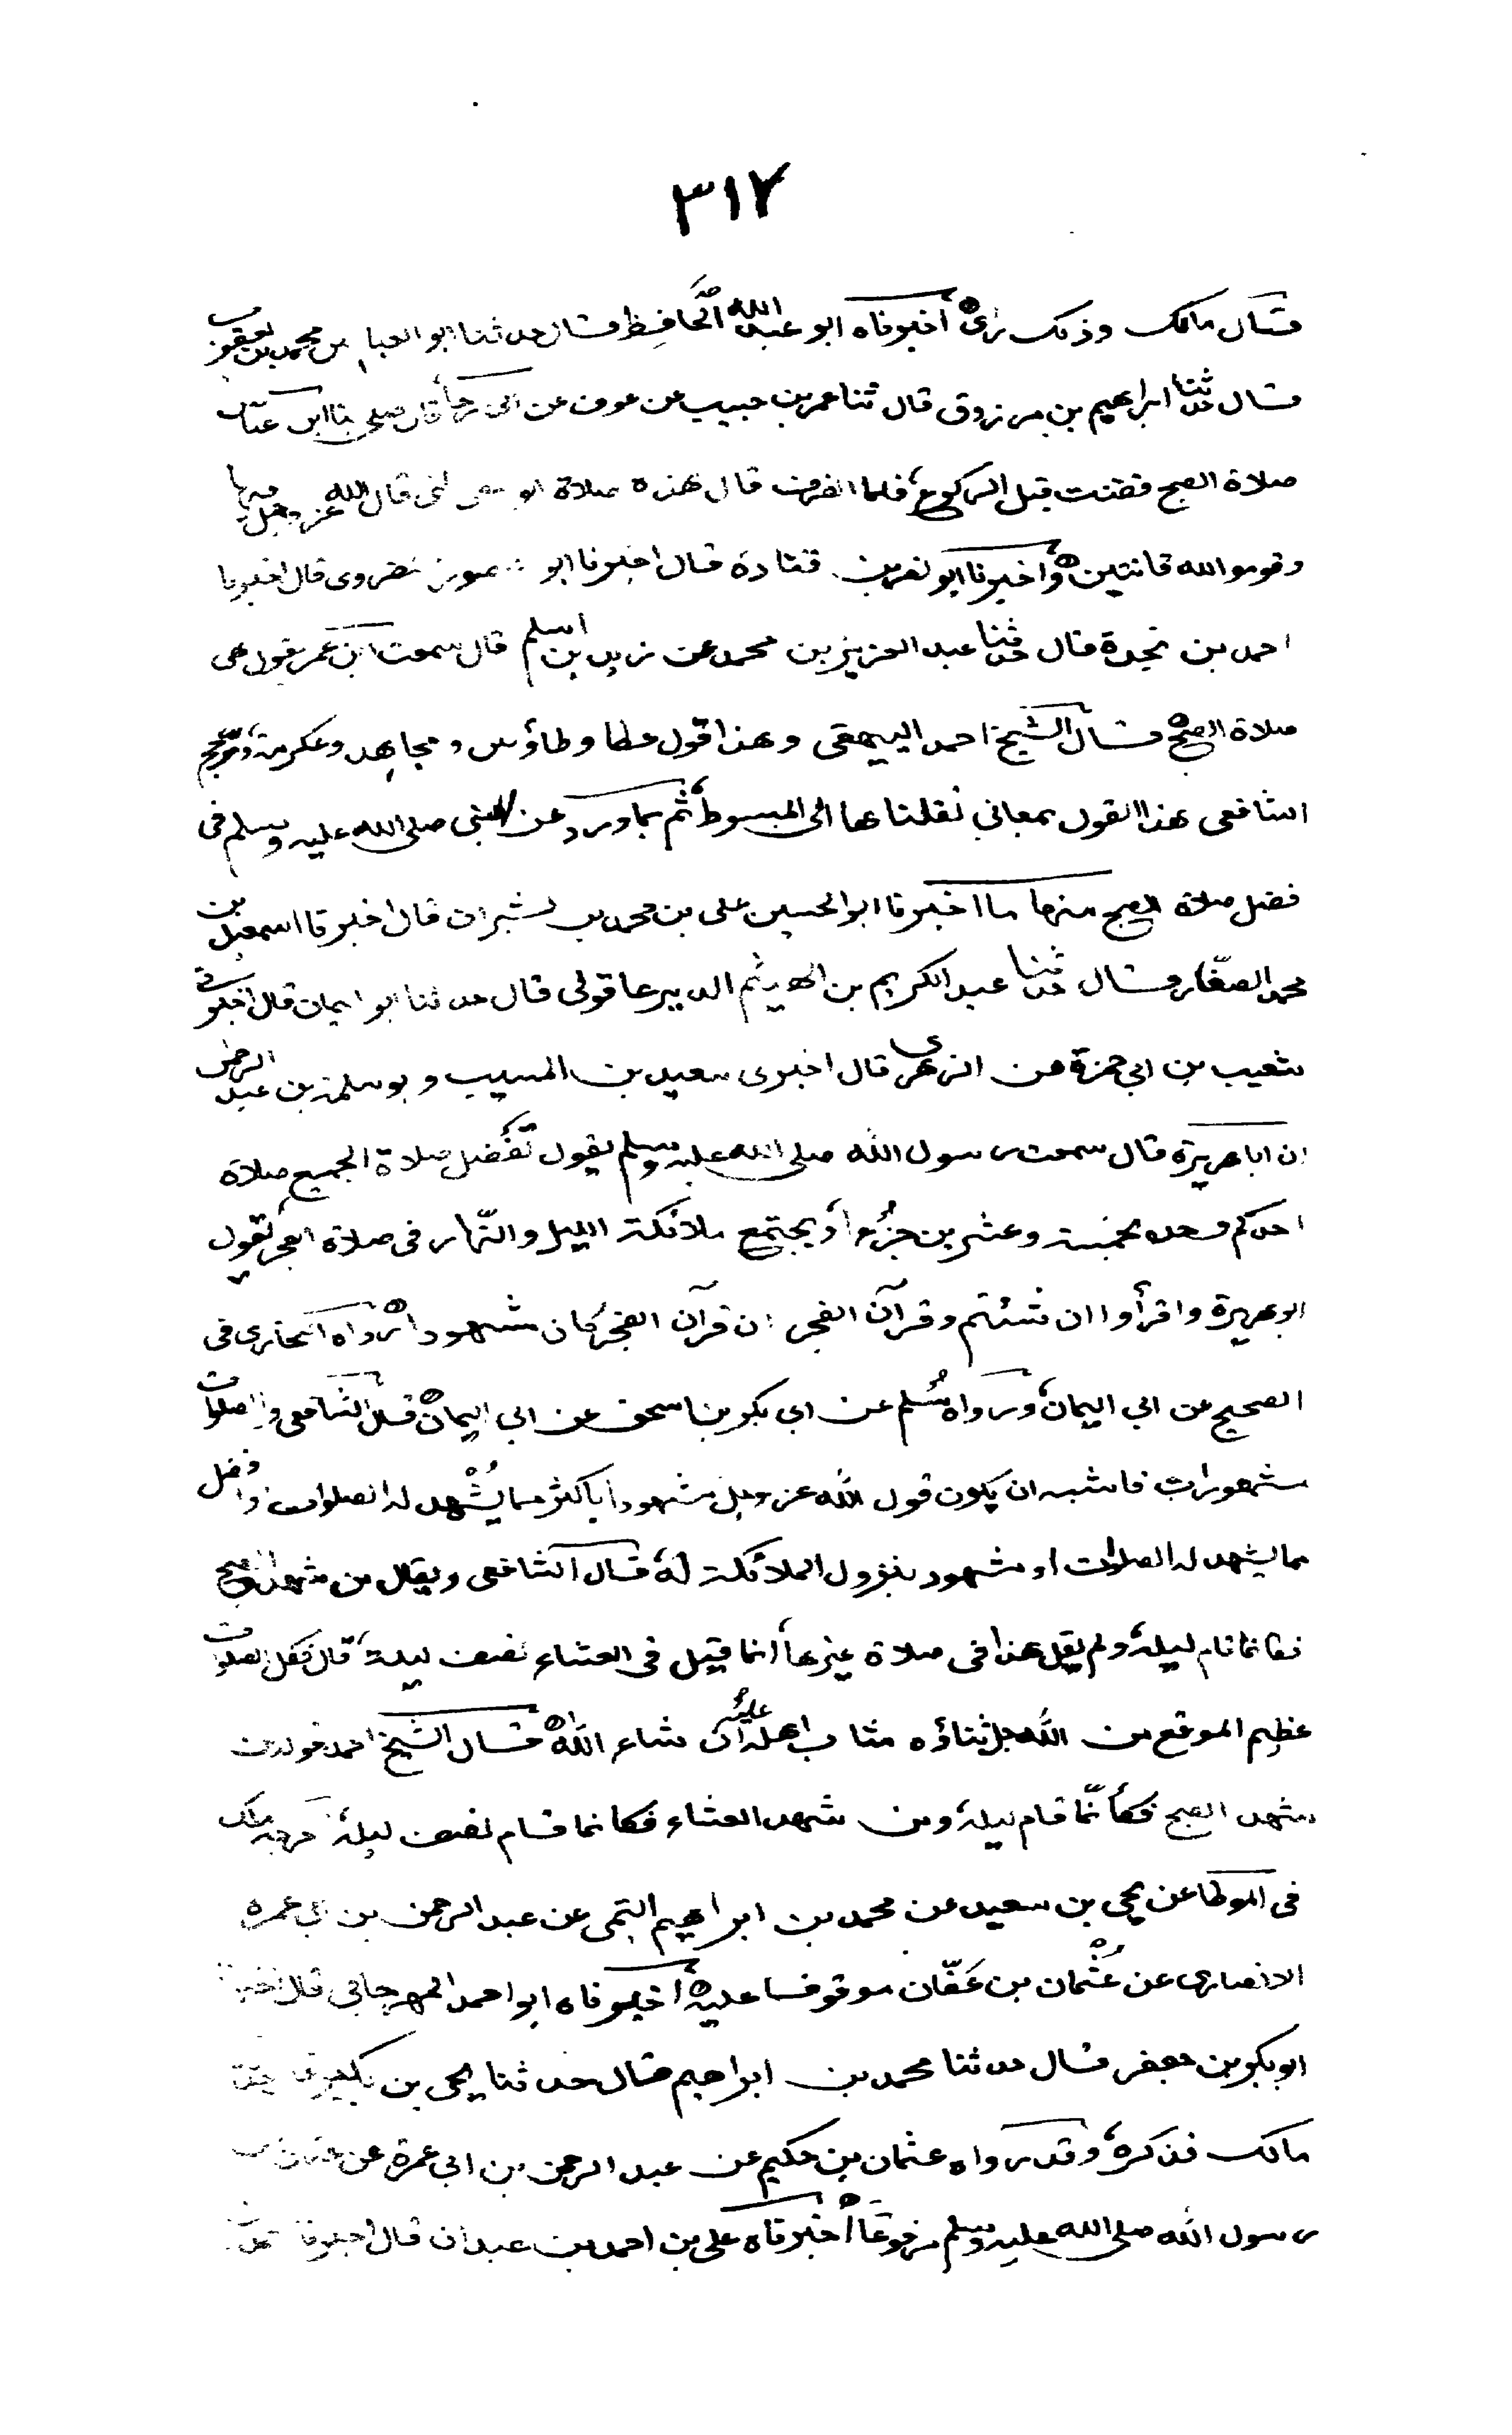 ٣١٧
قال مالك وذلك رأى أخبرناه ابو عبد الله الحافظ قال حدثنا ابو العباس محمد بن يعقوب
قال حدثنا ابراهيم بن مرزوق قال ثنا عمر بن حبيب عن عوف عن ابى رجا قال صلى بنا ابن عباس
صلاة الصبح فقنت قبل الركوع فلما انصرف قال هذه صلاة الوسطى التى قال الله عز وجل فيها
وقوموا لله قانتين وأخبرنا ابو نصر بن قتادة قال اخبرنا ابو منصور النضروى قال اخبرنا
احمد بن نجدة قال حدثنا عبد العزيز بن محمد عن زيد بن اسلم قال سمعت ابن عمر يقول هى
صلاة الصبح قال الشيخ احمد البيهقى وهذا قول عطا وطاؤس ومجاهد وعكرمة ورجح
الشافعى هذا القول بمعانى نقلناها الى المبسوط ثم بما ورد عن النبى صلى الله عليه وسلم فى
فضل صلاة الصبح منها ما اخبرنا ابو الحسين على بن محمد بن بشران قال اخبرنا اسمعيل بن
محمد الصفّار قال حدثنا عبد الكريم بن الهيثم الديرعاقولى قال حدثنا ابو ايمان قال اخبرنى
شعيب بن ابى حمزة عن الزهرى قال اخبرى سعيد بن المسيب وبوسلمة بن عبد الرحمن
ان ابا هريرة قال سمعت رسول الله صلى الله عليه وسلم يقول تفضل صلاة الجميع صلاة
احدكم وحده بخمسة وعشرين جزءا ويجتمع ملائكة الليل والنّهار فى صلاة الفجر يقول
ابو هريرة واقرأوا ان شئتم وقرآن الفجر ان قرآن الفجر كان مشهودا رواه البخارى فى
الصحيح عن ابى اليمان ورواه مسلم عن ابى بكر بن اسحق عن ابى اليمان قال الشافعى والصلوات
مشهورات فاشبه ان يكون قول الله عز وجل مشهودا باكثر مما يشهد له الصلوات وافضل
مما يشهد له الصلوات او مشهود بنزول الملائكة له قال الشافعى ويقال من شهد الصبح
فكانما قام ليله ولم يقل هذا فى صلاة غيرها انما قيل فى العشاء نصف ليلة قال فكل الصلوات
عظيم الموقع من الله جل ثناؤه مثاب اهله عليه ان شاء الله قال الشيخ احمد قوله من
شهد الصبح فكأنّما قام ليله ومن شهد العشاء فكانما قام نصف ليله خرجه مالك
فى الموطا عن يحيى بن سعيد عن محمد بن ابراهيم التيمى عن عبد الرحمن بن ابى عمره
الانصارى عن عُثْمان بن عَفّان موقوفا عليه أخبرناه ابو احمد المهرجانى قال اخبرنا
ابو بكر بن جعفر قال حدثنا محمد بن ابراهيم قال حدثنا يحيى بن بكير قال حدثنا
مالك فذكره وقد رواه عثمان بن حكيم عن عبد الرحمن بن ابى عمرة عن عثمان عن
رسول الله صلى الله عليه وسلم مرفوعًا أخبرناه على بن احمد بن عبدان قال اخبرنا